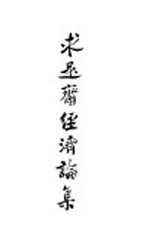 求是齋經濟論集